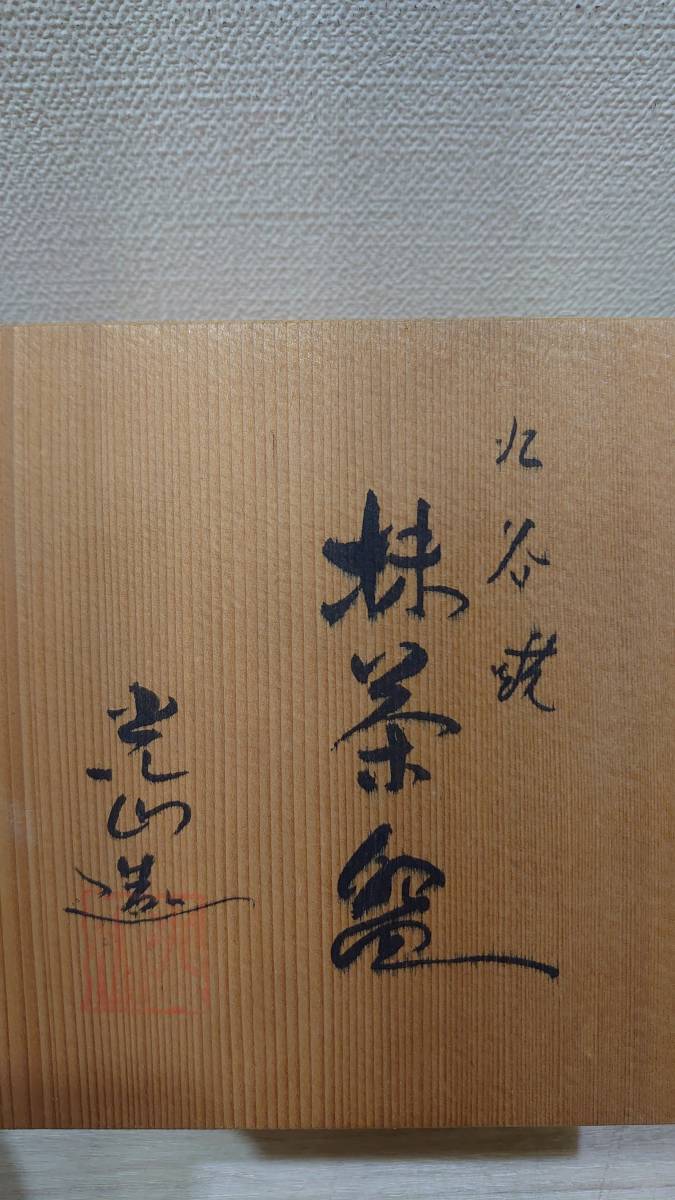 九谷焼
抹茶盌
光山造